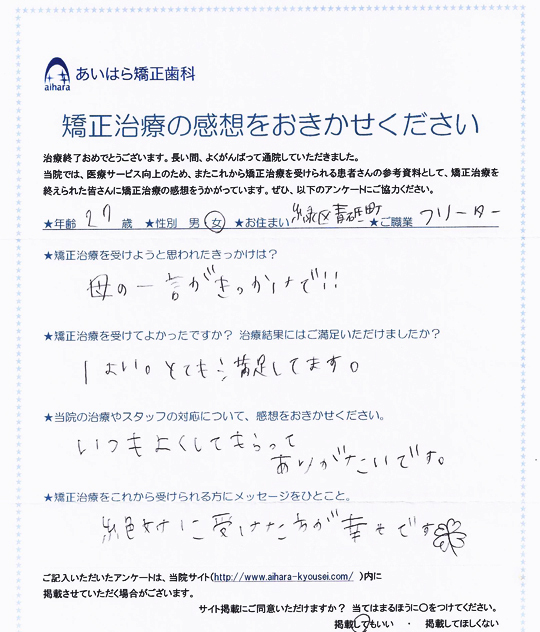 あいはら矯正歯科
aihara
矯正治療の感想をおきかせください
治療終了おめでとうございます。長い間、よくがんばって通院していただきました。
当院では、医療サービス向上のため、またこれから矯正治療を受けられる患者さんの参考資料として、矯正治療を
終えられた皆さんに矯正治療の感想をうかがっています。ぜひ、以下のアンケートにご協力ください。
★年齢 27 歳 ★性別 男 女 ★お住まい 緑区青砥町 ★ご職業 フリーター
★矯正治療を受けようと思われたきっかけは?
母の一言がきっかけで!!
★矯正治療を受けてよかったですか? 治療結果にはご満足いただけましたか?
はい。とても満足してます。
★当院の治療やスタッフの対応について、感想をおきかせください。
いつもよくしてもらって
ありがたいです。
★矯正治療をこれから受けられる方にメッセージをひとこと。
絶対に受けた方が幸せです
ご記入いただいたアンケートは、当院サイト(http://www.aihara-kyousei.com/ )内に
掲載させていただく場合がございます。
サイト掲載にご同意いただけますか? 当てはまるほうに○をつけてください。
掲載してもいい ・ 掲載してほしくない